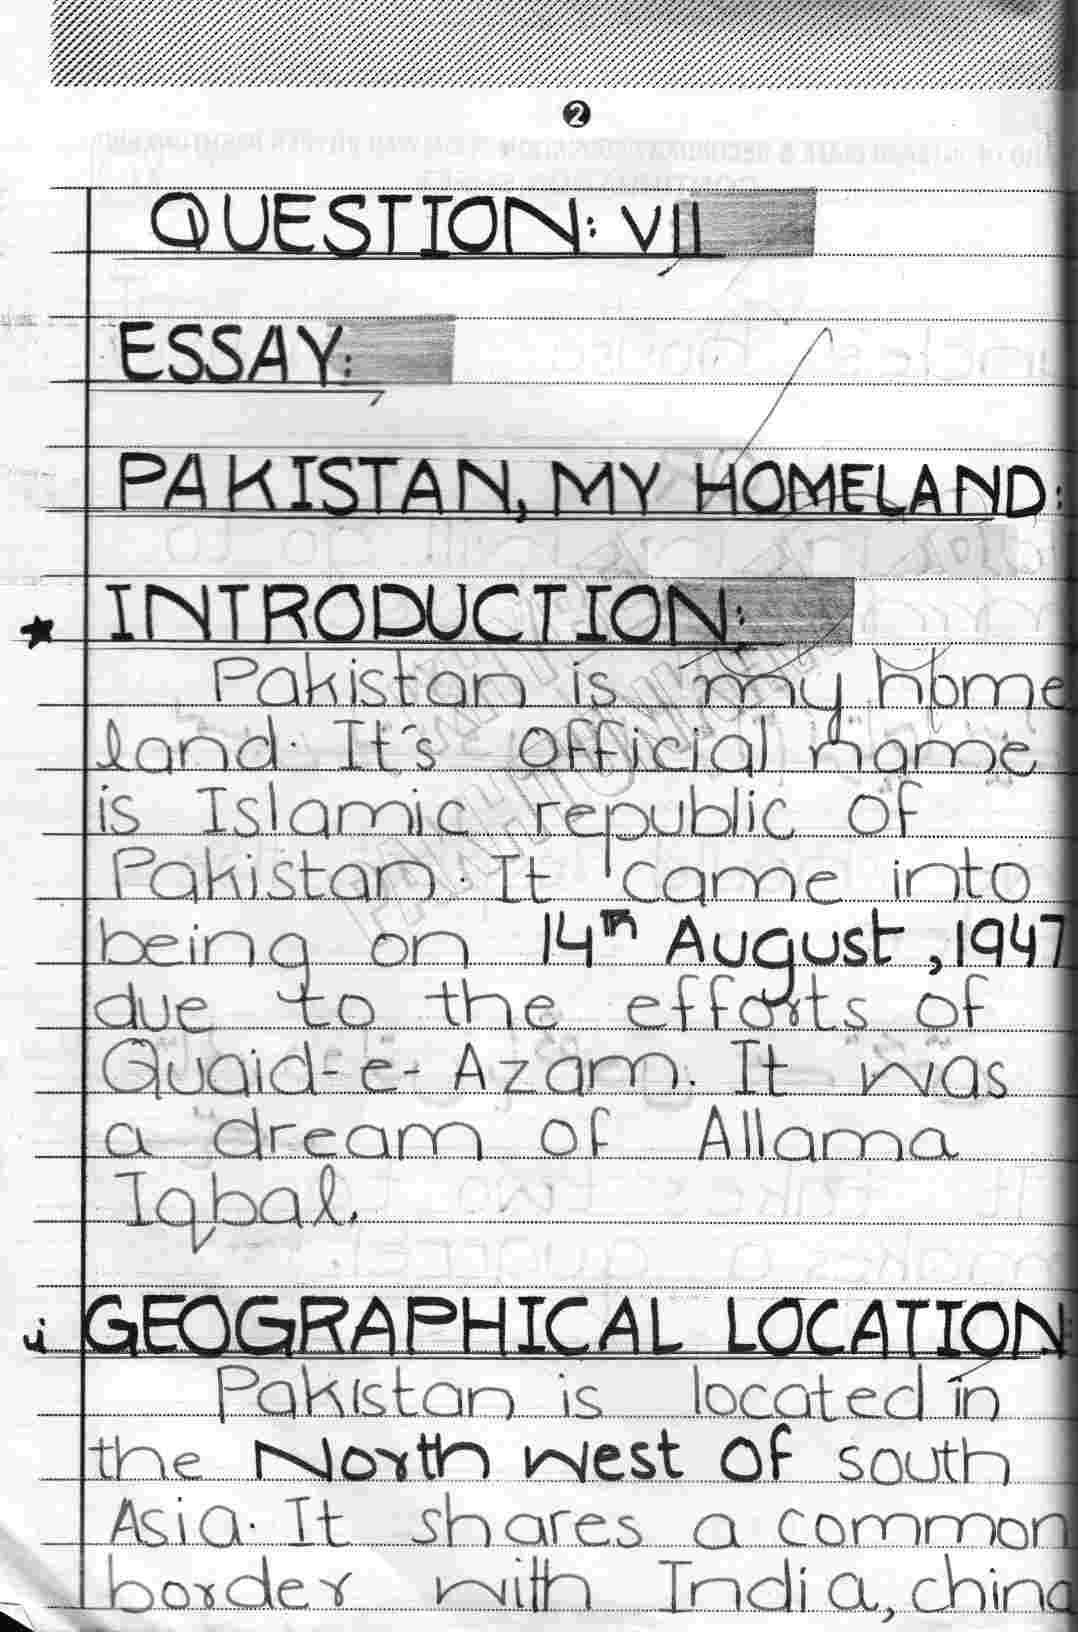 2
QUESTION: VII
ESSAY:
PAKISTAN, MY HOMELAND:
INTRODUCTION:
Pakistan is my home
land. It's official name
is Islamic republic of
Pakistan. It came into
being on 14th August, 1947
due to the efforts of
Quaid-e-Azam. It was
a dream of Allama
Iqbal.
GEOGRAPHICAL LOCATION:
Pakistan is located in
the North west of south
Asia. It shares a common
border with India, china